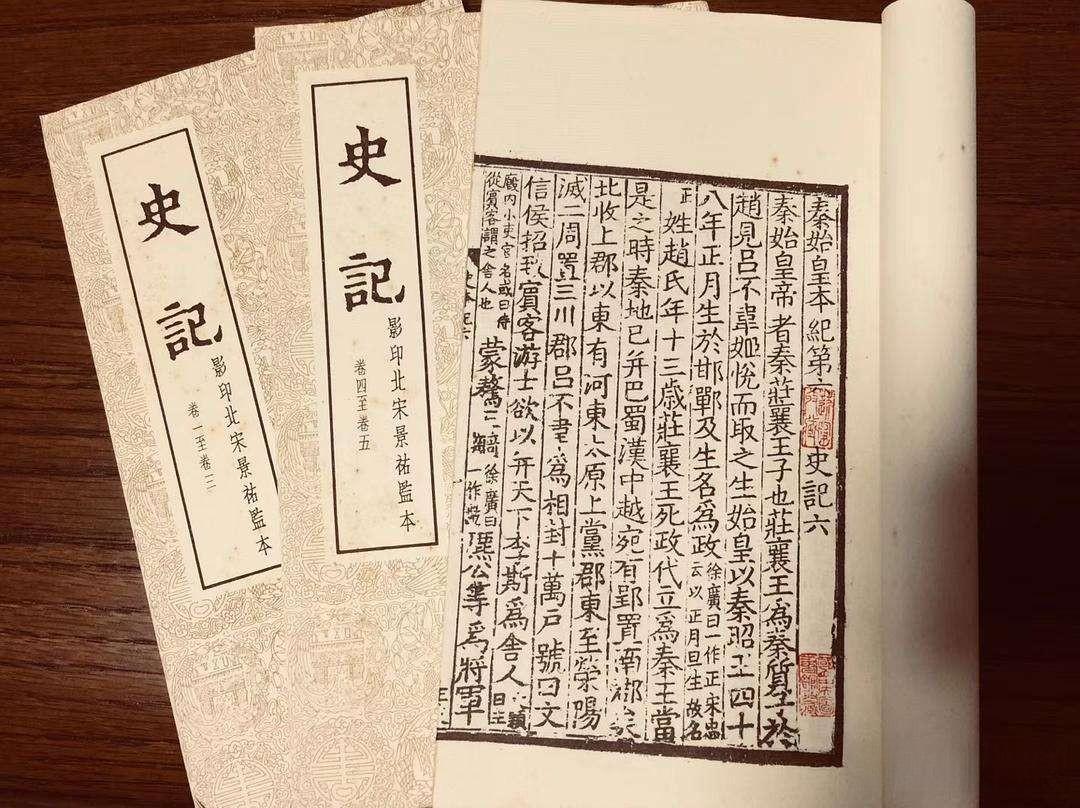 史記
影印北宋景祐監本
卷一至卷三
史記
影印北宋景祐監本
卷四至卷五
秦始皇本紀第 史記六
秦始皇帝者秦莊襄王子也莊襄王爲秦質子於
趙見呂不韋姬悅而取之生始皇以秦昭王四十
八年正月生於邯鄲及生名爲政徐廣曰一作正宋忠云以正月旦生故名
正姓趙氏年十三歲莊襄王死政代立爲秦王當
是之時秦地已并巴蜀漢中越宛有郢置南郡矣
北收上郡以東有河東太原上黨郡東至滎陽
滅二周置三川郡呂不韋爲相封十萬戶號曰文
信侯招致賓客游士欲以并天下李斯爲舍人穎曰主
廄內小吏官名或曰侍從賓客謂之舍人也蒙驁王齮徐廣曰一作齕麃公等爲將軍